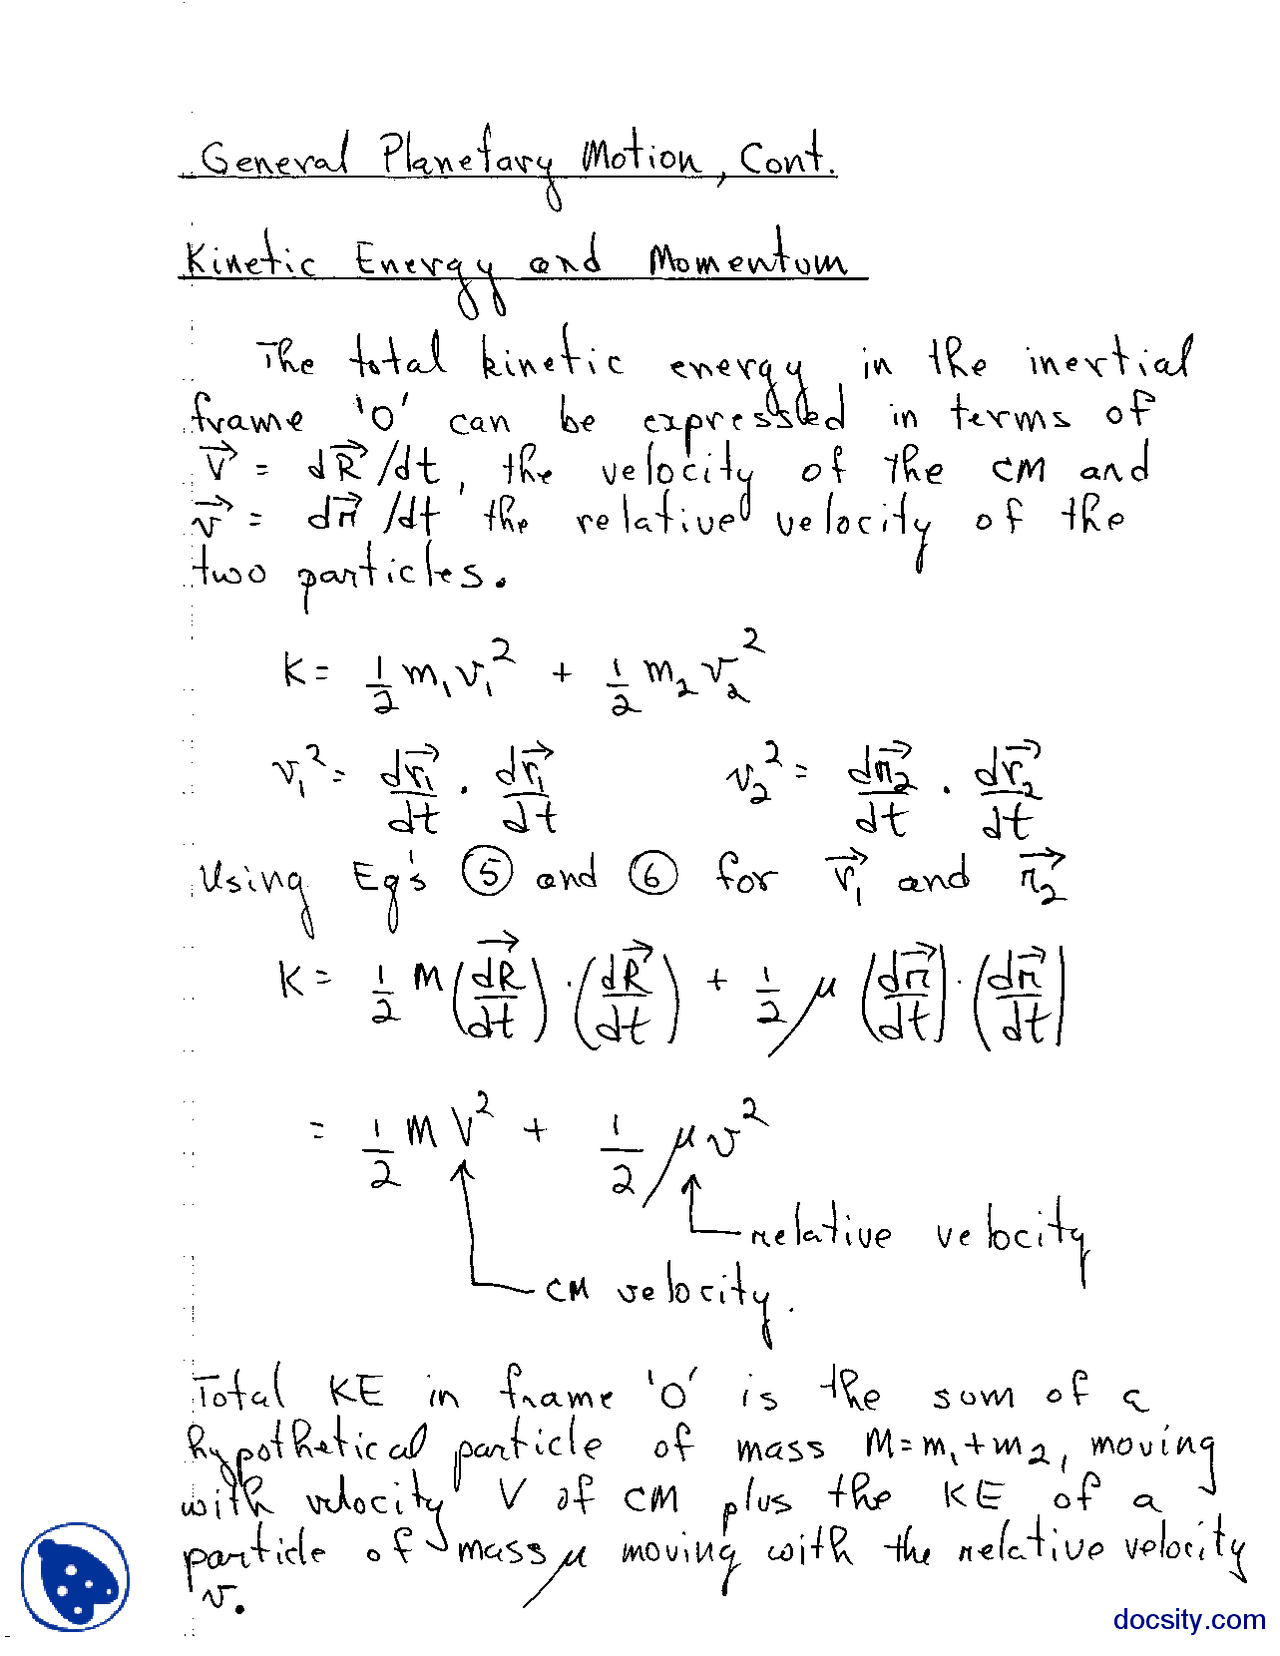 General Planetary Motion, Cont.
Kinetic Energy and Momentum
The total kinetic energy in the inertial
frame 'O' can be expressed in terms of
V⃗ = dR⃗/dt, the velocity of the CM and
v⃗ = dr⃗/dt the relative velocity of the
two particles.
K = 1/2 m₁v₁² + 1/2 m₂v₂²
v₁² = dr⃗₁/dt · dr⃗₁/dt    v₂² = dr⃗₂/dt · dr⃗₂/dt
Using Eq's ⑤ and ⑥ for r⃗₁ and r⃗₂
K = 1/2 M (dR⃗/dt) · (dR⃗/dt) + 1/2 μ (dr⃗/dt) · (dr⃗/dt)
= 1/2 M V² + 1/2 μ v²
relative velocity
CM velocity.
Total KE in frame 'O' is the sum of a
hypothetical particle of mass M=m₁+m₂, moving
with velocity V of CM plus the KE of a
particle of mass μ moving with the relative velocity
v.
docsity.com